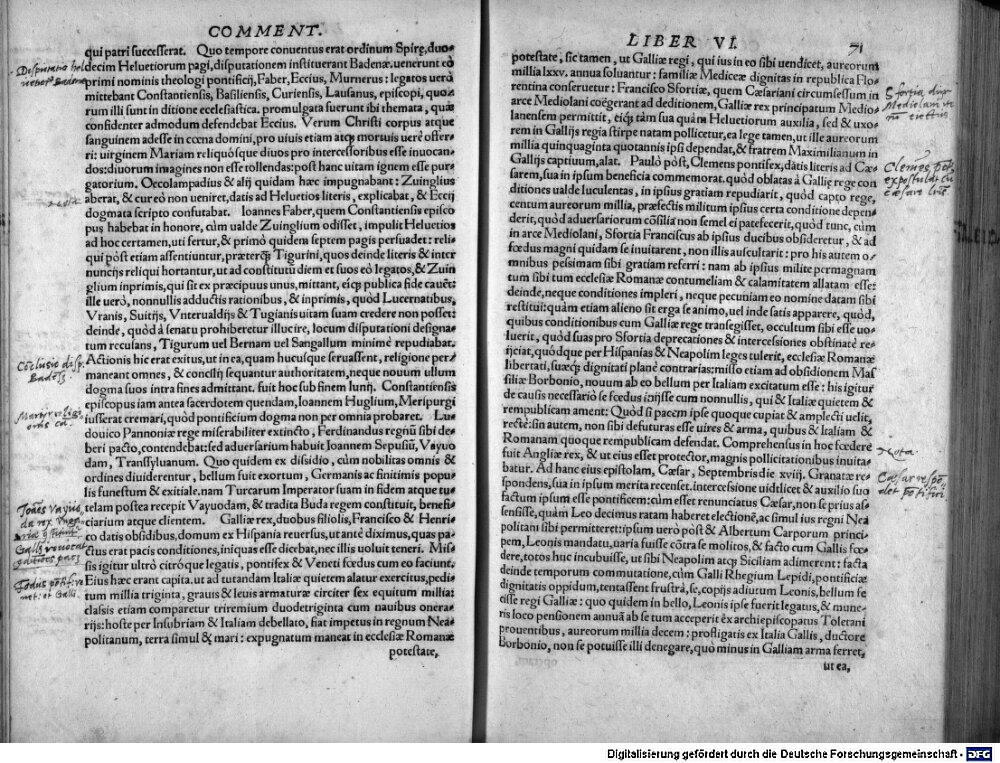 COMMENT.
qui patri successerat. Quo tempore conuentus erat ordinum Spirę, duo-
decim Heluetiorum pagi, disputationem instituerant Badenæ. uenerunt eò
primi nominis theologi pontificij, Faber, Eccius, Murnerus: legatos uerò
mittebant Constantiensis, Basiliensis, Curiensis, Lausanus, episcopi, quo-
rum illi sunt in ditione ecclesiastica. promulgata fuerunt ibi themata, quæ
confidenter admodum defendebat Eccius. Verum Christi corpus atque
sanguinem adesse in cœna domini, pro uiuis etiam atq; mortuis uerè offer-
ri: uirginem Mariam reliquósque diuos pro intercessoribus esse inuocan-
dos: diuorum imagines non esse tollendas: post hanc uitam ignem esse pur-
gatorium. Oecolampadius & alij quidam hæc impugnabant: Zuinglius
aberat, & cur eò non ueniret, datis ad Heluetios literis, explicabat, & Eccij
dogmata scripto confutabat. Ioannes Faber, quem Constantiensis episco-
pus habebat in honore, cùm ualde Zuinglium odisset, impulit Heluetios
ad hoc certamen, uti fertur, & primò quidem septem pagis persuadet: reli-
qui pòst etiam assentiuntur, præterq̃ Tigurini, quos deinde literis & inter
nuncijs reliqui hortantur, ut ad constitutũ diem et suos eò legatos, & Zuin
glium inprimis, qui sit ex præcipuus unus, mittant, eiq; publica fide cauẽt:
ille uerò, nonnullis adductis rationibus, & inprimis, quòd Lucernatibus,
Vranis, Suitijs, Vnterualdijs & Tugianis uitam suam credere non posset:
deinde, quòd à senatu prohiberetur illucire, locum disputationi designa-
tum recusans, Tigurum uel Bernam uel Sangallum minimè repudiabat.
Actionis hic erat exitus, ut in ea, quam hucusque seruassent, religione per-
maneant omnes, & concilij sequantur authoritatem, neque nouum ullum
dogma suos intra fines admittant. fuit hoc sub finem Iunij. Constantiensis
episcopus iam antea sacerdotem quendam, Ioannem Huglium, Meripurgi
iusserat cremari, quòd pontificium dogma non per omnia probaret. Lu-
douico Pannoniæ rege miserabiliter extincto, Ferdinandus regnũ sibi de-
beri pacto, contendebat: sed aduersarium habuit Ioannem Sepusiũ, Vayuo
dam, Transsyluanum. Quo quidem ex dissidio, cùm nobilitas omnis &
ordines diuiderentur, bellum fuit exortum, Germanis ac finitimis popu-
lis funestum & exitiale. nam Turcarum Imperator suam in fidem atque tu-
telam postea recepit Vayuodam, & tradita Buda regem constituit, benefi-
ciarium atque clientem. Galliæ rex, duobus filiolis, Francisco & Henri-
co datis obsidibus, domum ex Hispania reuersus, ut antè diximus, quas pa-
ctus erat pacis conditiones, iniquas esse dicebat, nec illis uoluit teneri. Mis-
sis igitur ultrò citróque legatis, pontifex & Veneti fœdus cum eo faciunt.
Eius hæc erant capita. ut ad tutandam Italiæ quietem alatur exercitus, pedi-
tum millia triginta, grauis & leuis armaturæ circiter sex equitum millia:
classis etiam comparetur triremium duodetriginta cum nauibus onera-
rijs: hoste per Insubriam & Italiam debellato, fiat impetus in regnum Nea-
politanum, terra simul & mari: expugnatum maneat in ecclesiæ Romanæ
potestate,
LIBER VI.
71
potestate, sic tamen, ut Galliæ regi, qui ius in eo sibi uendicet, aureorum
millia lxxv. annua soluantur: familiæ Mediceæ dignitas in republica Flo-
rentina conseruetur: Francisco Sfortiæ, quem Cæsariani circumsessum in
arce Mediolani coëgerant ad deditionem, Galliæ rex principatum Medio-
lanensem permittit, eiq; tàm sua quàm Heluetiorum auxilia, sed & uxo-
rem in Gallijs regia stirpe natam pollicetur, ea lege tamen, ut ille aureorum
millia quinquaginta quotannis ipsi dependat, & fratrem Maximilianum in
Gallijs captiuum, alat. Paulò pòst, Clemens pontifex, datis literis ad Cæ-
sarem, sua in ipsum beneficia commemorat. quòd oblatas à Gallię rege con
ditiones ualde luculentas, in ipsius gratiam repudiarit, quòd capto rege,
centum aureorum millia, præfectis militum ipsius certa conditione depen-
derit, quòd aduersariorum cõsilia non semel ei patefecerit, quòd tunc, cùm
in arce Mediolani, Sfortia Franciscus ab ipsius ducibus obsideretur, & ad
fœdus magni quidam se inuitarent, non illis auscultarit: pro his autem o-
mnibus pessimam sibi gratiam referri: nam ab ipsius milite permagnam
tum sibi tum ecclesiæ Romanæ contumeliam & calamitatem allatam esse:
deinde, neque conditiones impleri, neque pecuniam eo nomine datam sibi
restitui: quàm etiam alieno sit erga se animo, uel inde satis apparere, quòd,
quibus conditionibus cum Galliæ rege transegisset, occultum sibi esse uo-
luerit, quòd suas pro Sfortia deprecationes & intercessiones obstinatè re-
ijciat, quódque per Hispanias & Neapolim leges tulerit, ecclesiæ Romanæ
libertati, suæq; dignitati planè contrarias: misso etiam ad obsidionem Mas
siliæ Borbonio, nouum ab eo bellum per Italiam excitatum esse: his igitur
de causis necessariò se fœdus inijsse cum nonnullis, qui & Italiæ quietem &
rempublicam ament: Quòd si pacem ipse quoque cupiat & amplecti uelit,
rectè: sin autem, non sibi defuturas esse uires & arma, quibus & Italiam &
Romanam quoque rempublicam defendat. Comprehensus in hoc fœdere
fuit Angliæ rex, & ut eius esset protector, magnis pollicitationibus inuita-
batur. Ad hanc eius epistolam, Cæsar, Septembris die xviij. Granatæ re-
spondens, sua in ipsum merita recenset. intercessione uidelicet & auxilio suo
factum ipsum esse pontificem: cùm esset renunciatus Cæsar, non se prius as-
sensisse, quàm Leo decimus ratam haberet electionẽ, ac simul ius regni Nea
politani sibi permitteret: ipsum uerò pòst & Albertum Carporum princi-
pem, Leonis mandatu, uaria fuisse cõtra se molitos, & facto cum Gallis fœ-
dere, totos huc incubuisse, ut sibi Neapolim atq; Siciliam adimerent: facta
deinde temporum commutatione, cùm Galli Rhegium Lepidi, pontificiæ
dignitatis oppidum, tentassent frustrà, se, copijs adiutum Leonis, bellum fe
cisse regi Galliæ: quo quidem in bello, Leonis ipse fuerit legatus, & mune-
ris loco pensionem annuã ab se tum acceperit ẽx archiepiscopatus Toletani
prouentibus, aureorum millia decem: profligatis ex Italia Gallis, ductore
Borbonio, non se potuisse illi denegare, quò minus in Galliam arma ferret,
ut ea,
Nota
Digitalisierung gefördert durch die Deutsche Forschungsgemeinschaft - DFG